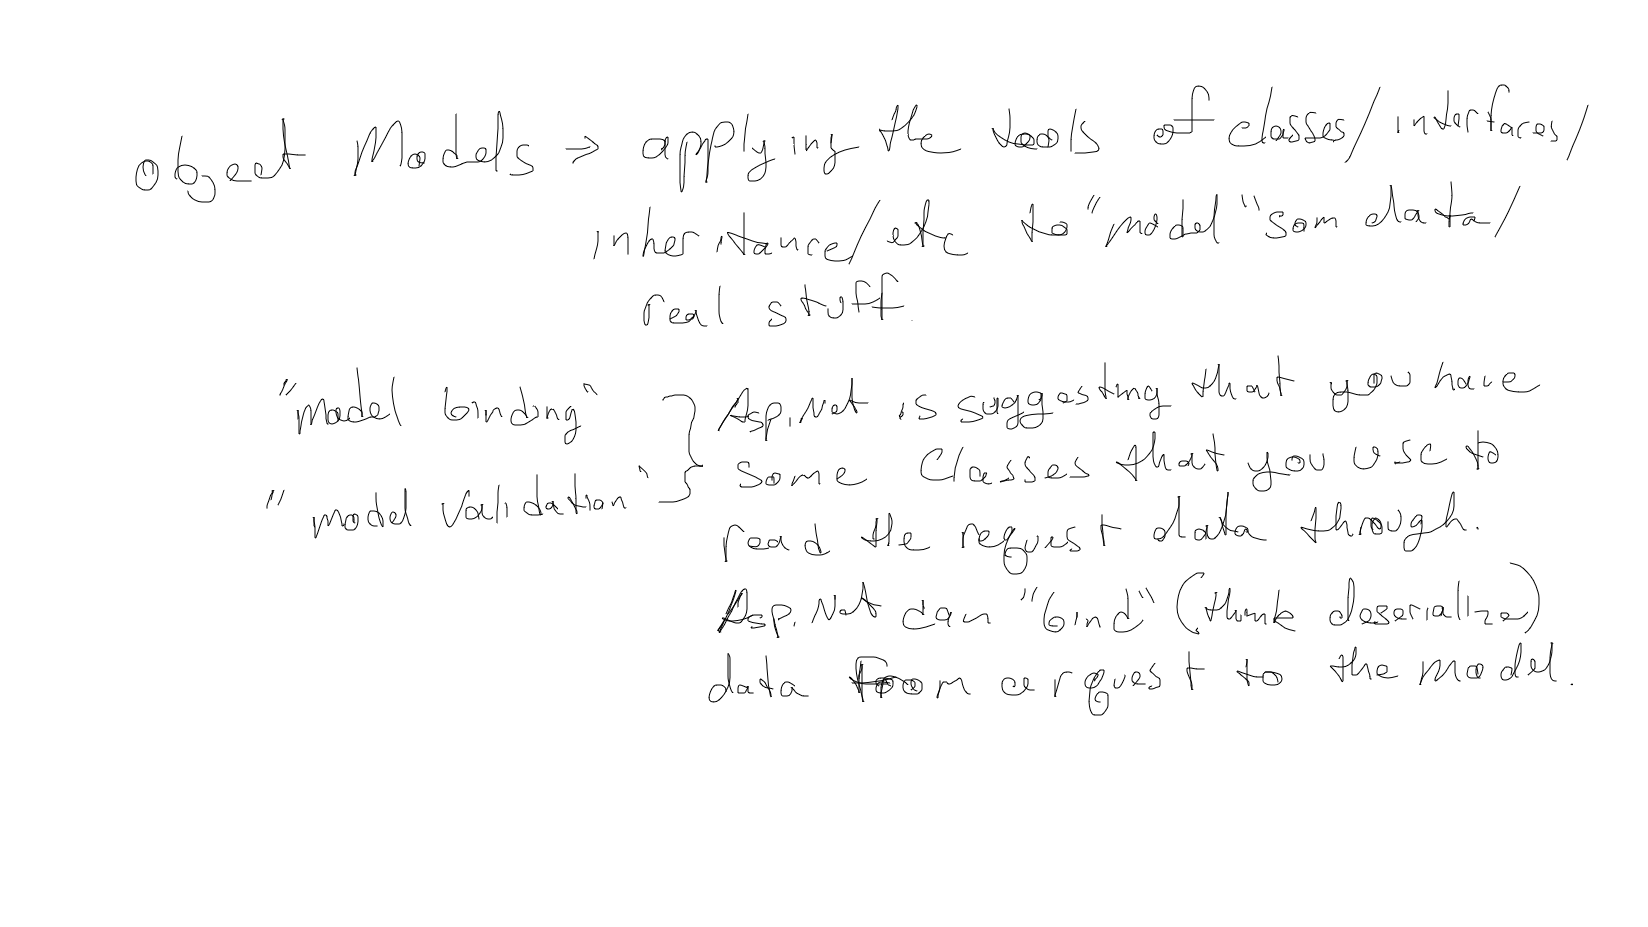 object Models → applying the tools of classes/interfaces/
inheritance/etc to "model" som data/
real stuff.
"model binding"
"model validation"
} Asp.Net is suggesting that you have
some classes that you use to
read the request data through.
Asp.Net can "bind" (think deserialize)
data from a rquest to the model.